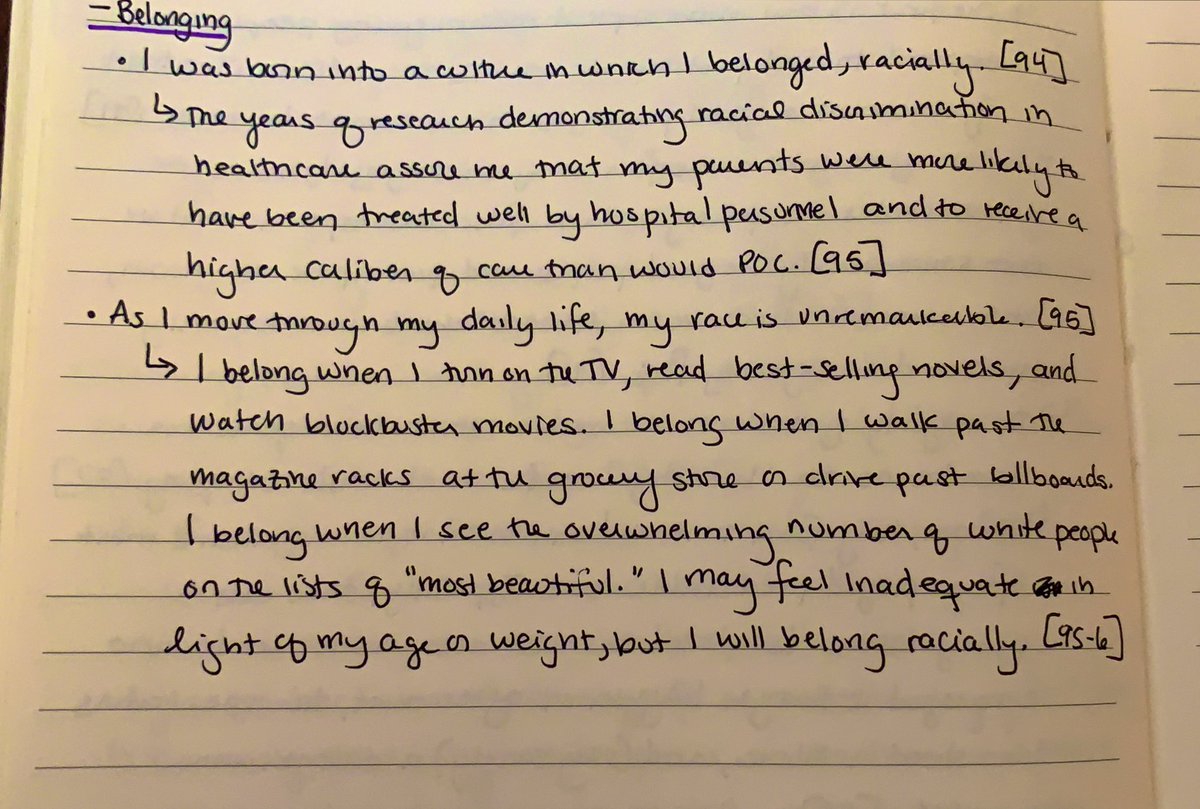 - Belonging
• I was born into a culture in which I belonged, racially. [94]
↳ The years of research demonstrating racial discrimination in
healthcare assure me that my parents were more likely to
have been treated well by hospital personnel and to receive a
higher caliber of care than would POC. [95]
• As I move through my daily life, my race is unremarkable. [95]
↳ I belong when I turn on the TV, read best-selling novels, and
watch blockbuster movies. I belong when I walk past the
magazine racks at the grocery store or drive past billboards.
I belong when I see the overwhelming number of white people
on the lists of "most beautiful." I may feel inadequate in
light of my age or weight, but I will belong racially. [95-6]